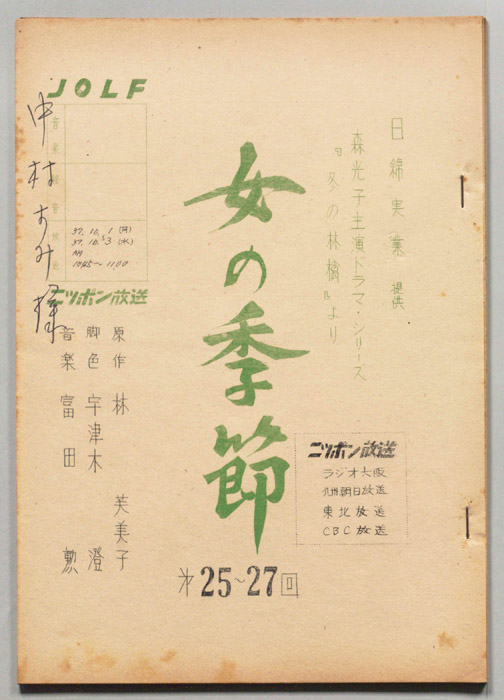 日綿実業 提供
森光子主演ドラマ・シリーズ
『冬の林檎』より
女の季節
第25〜27回
JOLF
音楽
録音
放送
37. 10. 1 (月)
37. 10. 3 (水)
AM
10:45〜11:00
ニッポン放送
中村すみ様
原作 林 芙美子
脚色 宇津木 澄
音楽 富田 勲
ニッポン放送
ラジオ大阪
九州朝日放送
東北放送
CBC放送